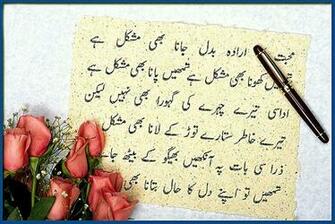 محبت ارادہ بدل جانا بھی مشکل ہے
کھونا بھی مشکل ہے تمہیں پانا بھی مشکل ہے
اداسی تیرے چہرے کی گہوارا بھی نہیں لیکن
تیرے خاطر ستارے توڑ کے لانا بھی مشکل
ذرا سی بات پہ آنکھیں بھیگو کے بیٹھ جاتے
تمہیں تو اپنے دل کا حال بتانا بھی